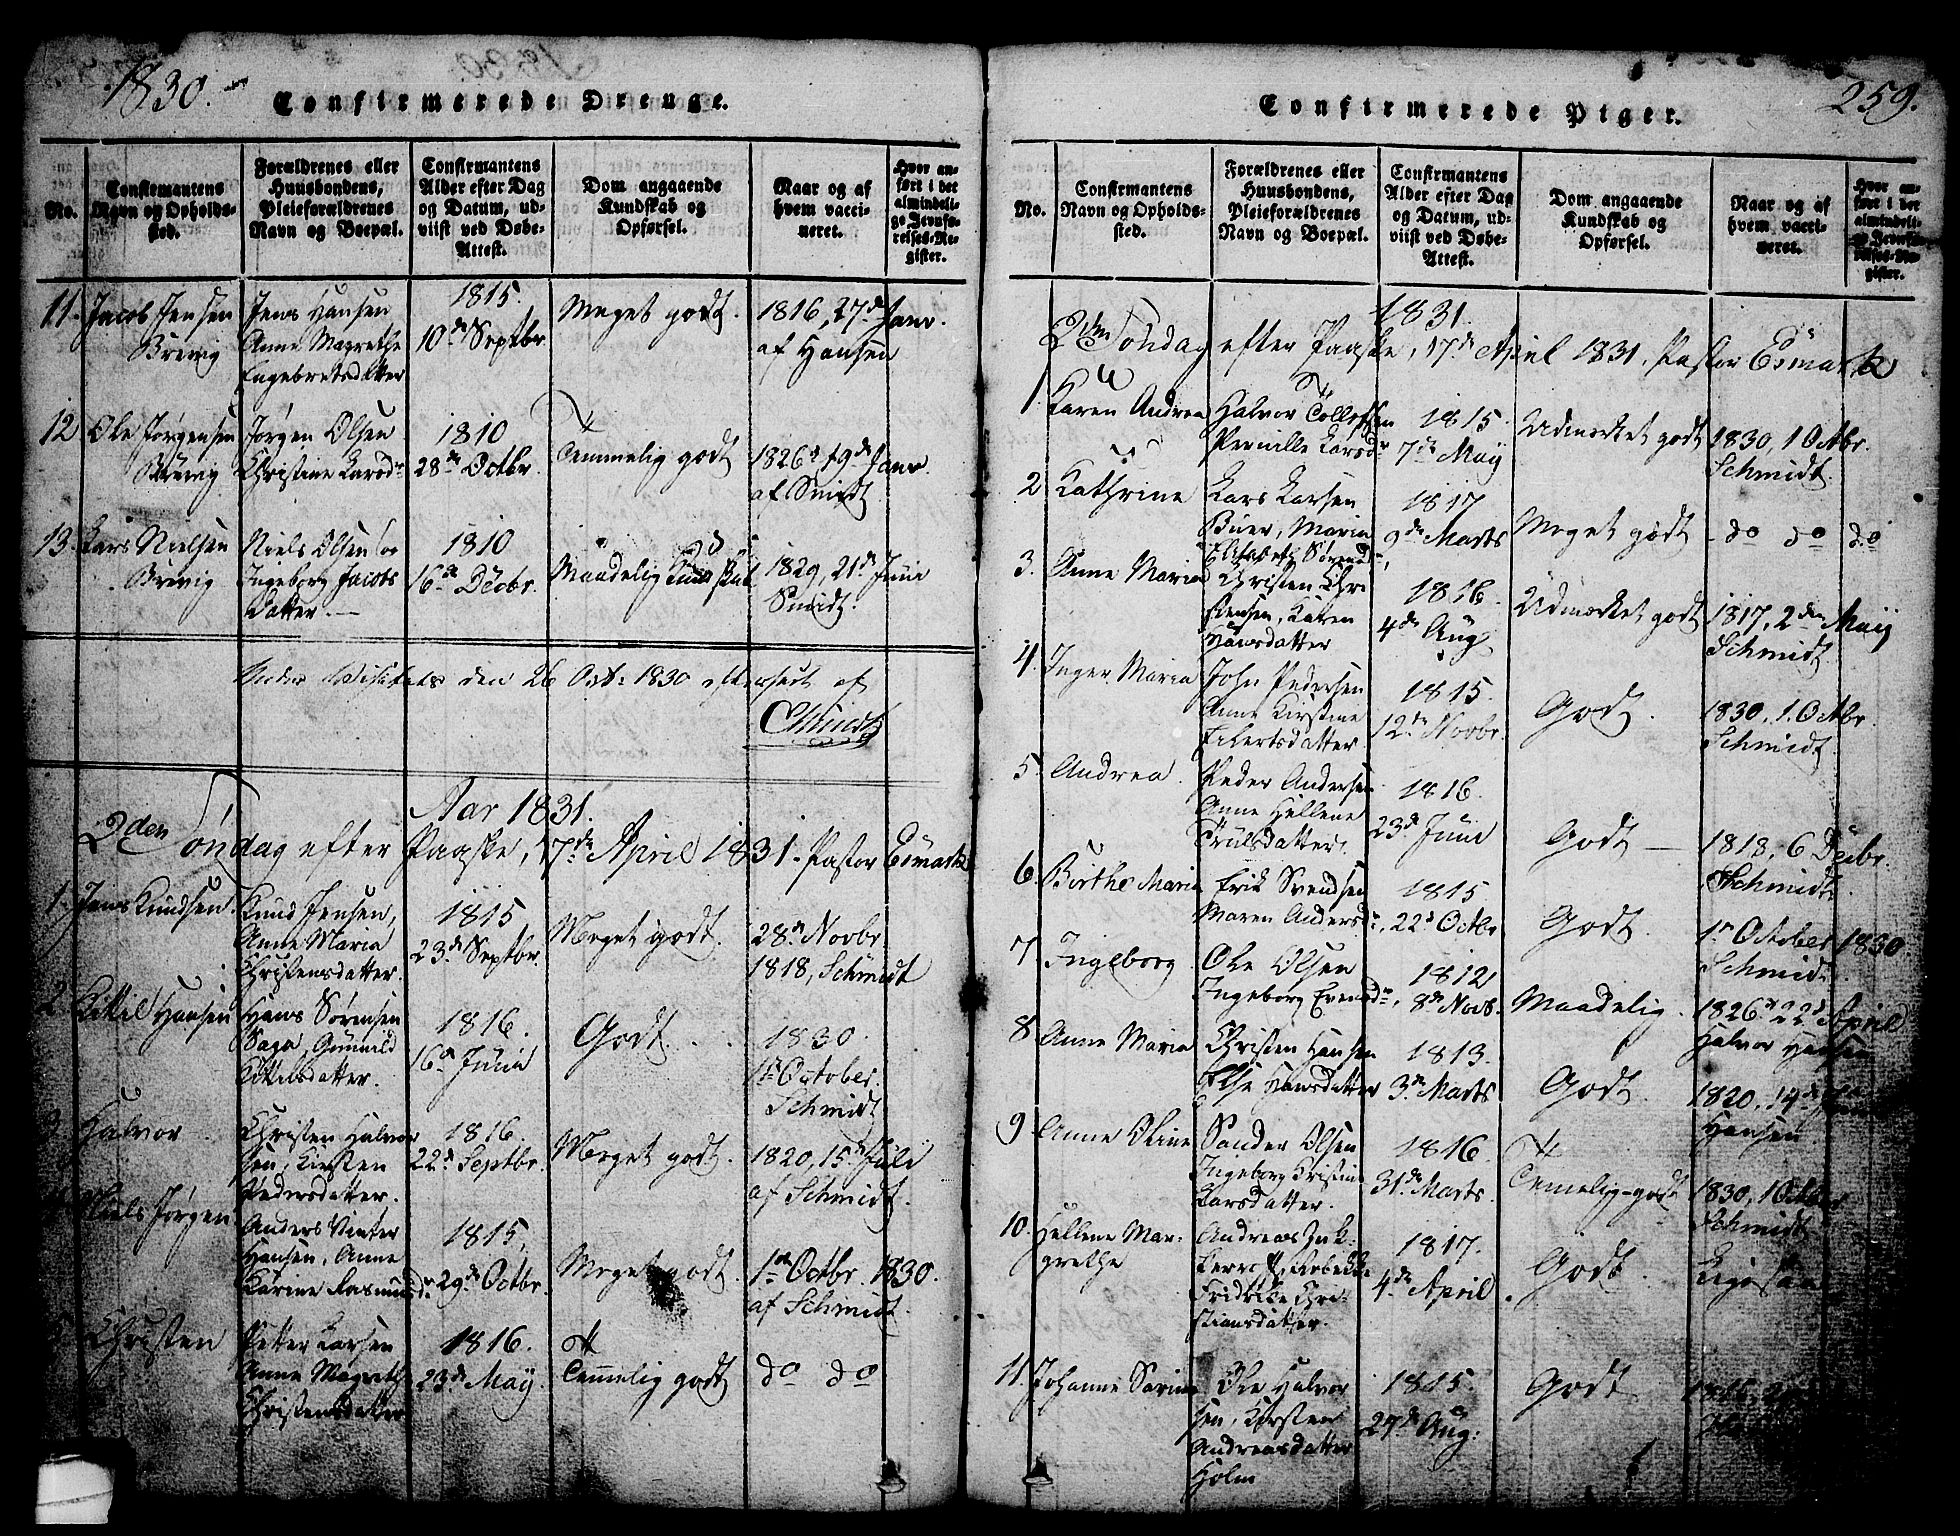 1830.
Confirmerede Drenge.
No.
Confirmantens
Navn og Opholds-
sted.
Forældrenes eller
Huusbondens,
Pleieforældrenes
Navn og Boepæl.
Confirmantens
Alder efter Dag
og Datum, ud-
viist ved Døbe-
Attest.
Dom angaaende
Kundskab og
Opførsel.
Naar og af
hvem vacci-
neret.
Hvor an-
ført i det
almindeli-
ge Jevnfø-
relses-Re-
gister.
11. Jacob Jensen
Brevig
Jens Hansen
Anne Magrethe
Engebretsdatter
1815.
10de Septbr
Meget godt.
1816, 27de Janr.
af Hansen
12 Ole Jørgensen
Brevig
Jørgen Olsen
Christine Larsdr
1810
28de Octbr.
Temmelig godt
1826, 19de Janr.
af Smidt.
13. Lars Nielsen
Brevig
Niels Olsen
Ingeborg Jacobs
Datter.
1810
16de Decbr.
Maadelig Kundskab
1829, 21de Junii
Smidt.
Under Visitats den 26 Oct: 1830 efterseet af
Aar 1831.
2den Søndag efter Paaske, 17de April 1831. Pastor Esmark
1. Jens Knudsen
Knud Jensen,
Anne Maria
Christensdatter.
1815
23de Septbr.
Meget godt.
28de Novbr.
1818, Schmidt
2 Kittil Hansen
Hans Sørensen
Saga, Gunnild
Kittelsdatter.
1816.
16de Junii
Godt.
1830.
1te October.
Schmidt
3 Halvor
Christen Halvor
sen, Kirsten
Pedersdatter.
1816.
22de Septbr.
Meget godt.
1820, 15de Julii
af Schmidt.
4 Niels Jørgen
Anders Winter
Hansen, Anne
Karine Rasmusdr
1815,
29de Octbr.
Meget godt.
1te Octbr. 1830.
af Schmidt.
Christen
Petter Larsen
Anne Magreth
Christensdatter
1816.
23de Maÿ.
Temmelig godt
do do
259.
Confirmerede Piger.
No.
Confirmantens
Navn og Opholds-
sted.
Forældrenes eller
Huusbondens,
Pleieforældrenes
Navn og Boepæl.
Confirmantens
Alder efter Dag
og Datum, ud-
viist ved Døbe-
Attest.
Dom angaaende
Kundskab og
Opførsel.
Naar og af
hvem vacci-
neret.
Hvor an-
ført i det
almindeli-
ge Jevnfø-
relses-Re-
gister.
1831.
2den Søndag efter Paaske, 17de April 1831. Pastor Esmark
1 Karen Andrea
Halvor Tollefsen
Pernille Larsdr
1815.
7de Maÿ
Udmærket godt
1830, 1 Octbr.
Schmidt.
2 Kathrine
Lars Larsen
Buer, Maria
Elisabeth Sørensdr
1817
9de Marts
Meget godt
do do do
3. Anne Maria
Christen Chri
stensen, Karen
Hansdatter
1816.
4de Aug
Udmærket godt
1817, 2den Maÿ
Schmidt.
4. Inger Maria
John Pedersen
Anne Kirstine
Eilertsdatter.
1815.
12te Novbr.
Godt.
1830, 1. Octbr.
Schmidt.
5. Andrea.
Peder Andersen
Anne Hellene
Trulsdatter.
1816.
23de Junii
Godt
1818, 6 Decbr.
Schmidt.
6. Birthe Maria
Erik Svendsen
Maren Andersdr
1815
22de Octbr
Godt.
1te October 1830.
Schmidt.
7 Ingeborg
Ole Olsen
Ingeborg Evensdr
1812
8de Novb.
Maadelig.
1826 22de April
Halvor Hansen
8 Anne Maria
Christen Hansen
Else Hansdatter
1813.
3de Marts
Godt.
1820, 14de
Hansen.
9 Anne Oline
Sander Olsen
Ingeborg Kristine
Larsdatter.
1816.
31de Marts.
Temelig-godt
1830, 1 Octbr
Schmidt
10. Hellene Mar-
grethe
Andreas
Rebekke
Fridrike Chri-
stiansdatter.
1817.
4de April
Godt.
Ligesaa
11. Johanne Sarine
Ole Halvor
sen, Kirsten
Andreasdatter
Holm
1815.
27de Aug:
Godt